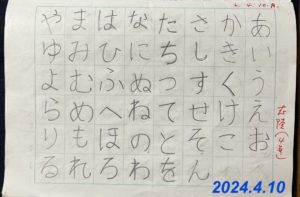 あいうえお
かきくけこ
さしすせそん
たちつてとを
なにぬねのわ
はひふへほろ
まみむめもれ
やゆよらりる
2024.4.10